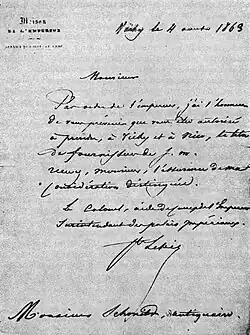 Maison
DE L'EMPEREUR
Vichy le 4 août 1863
Monsieur
Par ordre de l'Empereur, j'ai l'honneur
de vous prévenir que vous êtes autorisé
à prendre, à Vichy et à Nice, le titre
de fournisseur de S. M.
Recevez, Monsieur, l'assurance de ma
Considération distinguée.
Le Colonel, aide de camp de l'Empereur
Surintendant des palais Impériaux.
Monsieur Schonten, antiquaire